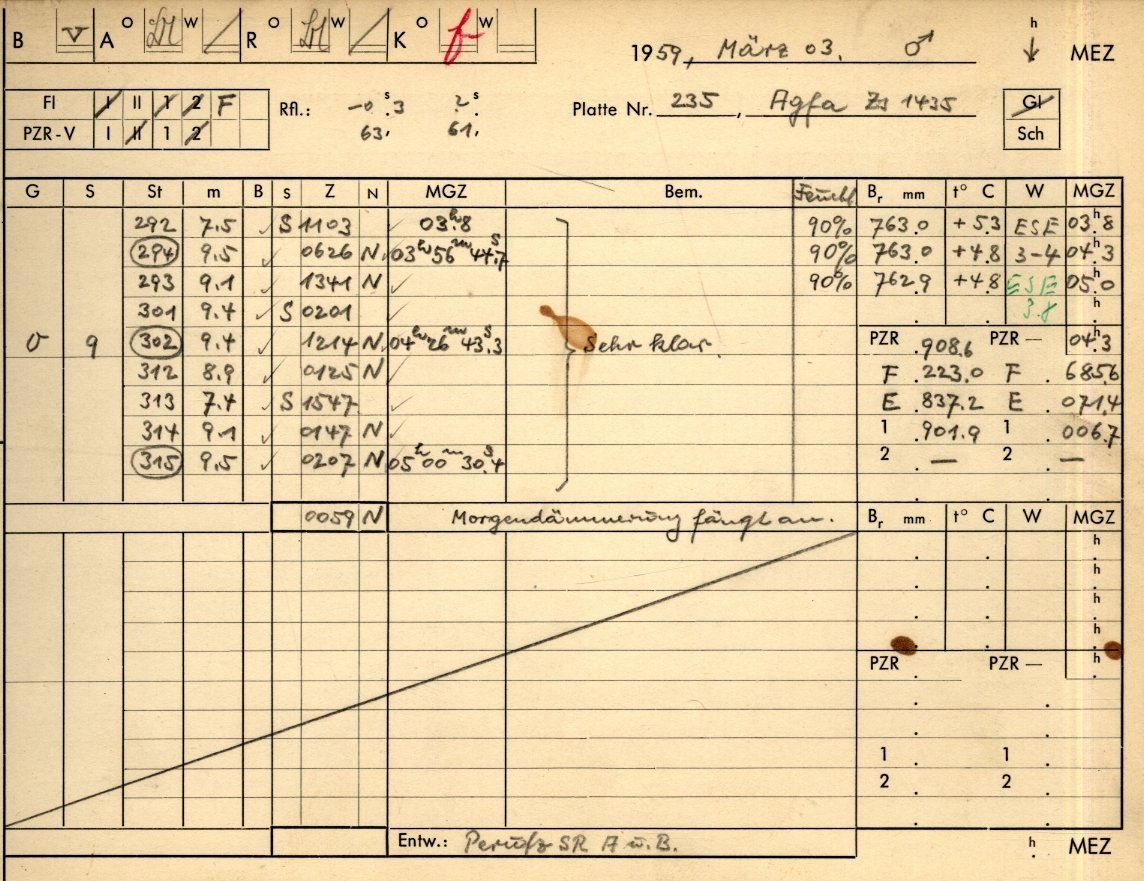 B v A O W R O W K O f W h
1959, März 03. ♂ ↓ MEZ
Fl I II 1 2 F
Rfl.: -0ˢ.3 2ˢ.
Platte Nr. 235, Agfa 1435 Gl
PZR-V I II 1 2 63, 61, Sch
G S St m B S Z N MGZ Bem. Feucht. Bᵣ mm t° C W MGZ
292 7.5 ✓ S 1103 ✓ 03ʰ.8 90% 763.0 +5.3 ESE 03ʰ.8
294 9.5 ✓ 0626 N 03ʰ56ᵐ44ˢ.7 90% 763.0 +4.8 3-4 04ʰ.3
293 9.1 ✓ 1341 N ✓ 90% 762.9 +4.8 ESE 05ʰ.0
301 9.4 ✓ S 0201 ✓ 3.8 h
σ 9 302 9.4 ✓ 1214 N 04ʰ26ᵐ43ˢ.3 Sehr klar. PZR .908.6 PZR — 04ʰ.3
312 8.9 ✓ 0125 N ✓ F .223.0 F . 685.6
313 7.4 ✓ S 1547 ✓ E .837.2 E . 071.4
314 9.1 ✓ 0147 N ✓ 1 .901.9 1 . 006.7
315 9.5 ✓ 0207 N 05ʰ00ᵐ30ˢ.4 2 — 2 —
0059 N Morgendämmerung fängt an. Bᵣ mm t° C W MGZ
h
h
h
h
PZR PZR — h
1 1
2 2
Entw.: Perutz SR A u. B. h MEZ